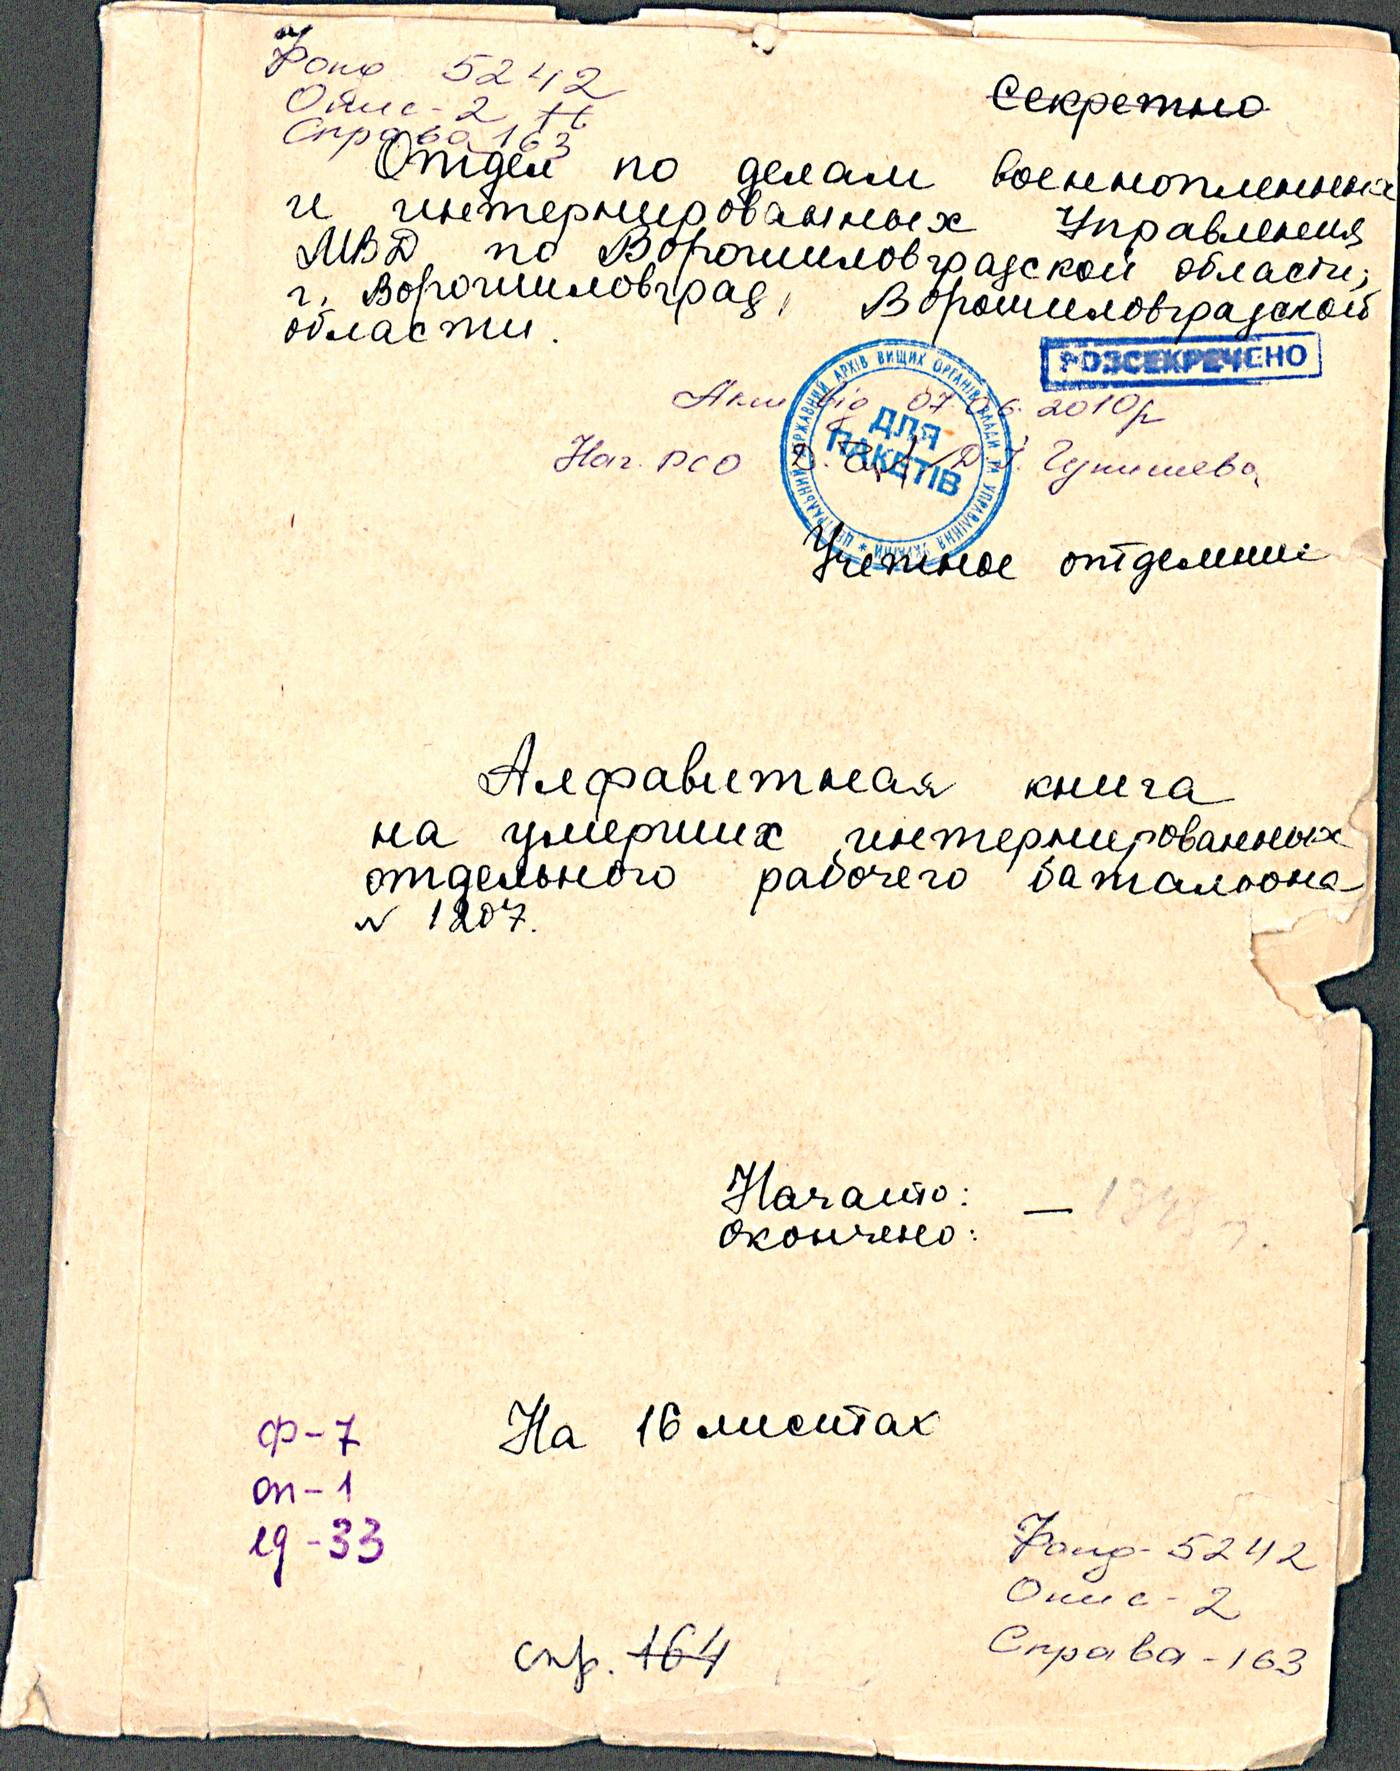 Фонд 5242
Опис-2
Справа 163
Секретно
Отдел по делам военнопленных
и интернированных Управления
МВД по Ворошиловградской области;
г. Ворошиловград, Ворошиловградской
области.
РОЗСЕКРЕЧЕНО
Акт від 07.06.2010р
ЦЕНТРАЛЬНИЙ ДЕРЖАВНИЙ АРХІВ ВИЩИХ ОРГАНІВ ВЛАДИ ТА УПРАВЛІННЯ УКРАЇНИ *
ДЛЯ
ПАКЕТІВ
Нач. РСО
Учетное отделение
Алфавитная книга
на умерших интернированных
отдельного рабочего батальона
№ 1207.
Начато: —
Окончено:
На 16 листах
Ф-7
оп-1
ед-33
Фонд-5242
Опис-2
Справа-163
спр. 164